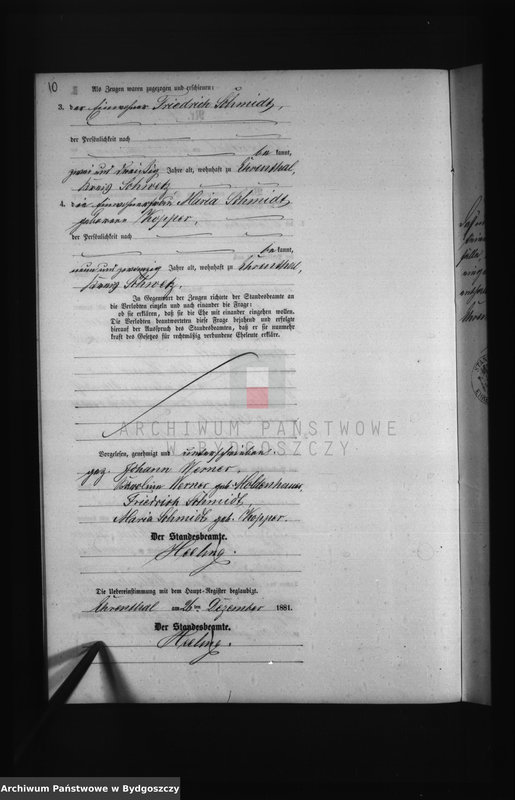 10
Als Zeugen waren zugezogen und erschienen:
3. der Einwohner Friedrich Schmidt,
der Persönlichkeit nach
be kannt,
zwei und dreißig Jahre alt, wohnhaft zu Ehrenthal,
Kreis Schwetz
4. die Einwohnerfrau Maria Schmidt,
geborene Kopper,
der Persönlichkeit nach
be kannt,
neun und zwanzig Jahre alt, wohnhaft zu Ehrenthal,
Kreis Schwetz.
In Gegenwart der Zeugen richtete der Standesbeamte an
die Verlobten einzeln und nach einander die Frage:
ob sie erklären, daß sie die Ehe mit einander eingehen wollen.
Die Verlobten beantworteten diese Frage bejahend und erfolgte
hierauf der Ausspruch des Standesbeamten, daß er sie nunmehr
kraft des Gesetzes für rechtmäßig verbundene Eheleute erkläre.
ARCHIWUM PAŃSTWOWE
W BYDGOSZCZY
Vorgelesen, genehmigt und unterschrieben.
gez. Johann Werner.
Karoline Werner geb. Moldenhauer,
Friedrich Schmidt,
Maria Schmidt geb. Kopper.
Der Standesbeamte.
Heeling.
Die Uebereinstimmung mit dem Haupt-Register beglaubigt.
Ehrenthal am 26ten Dezember 1881.
Der Standesbeamte.
Heeling.
Archiwum Państwowe w Bydgoszczy